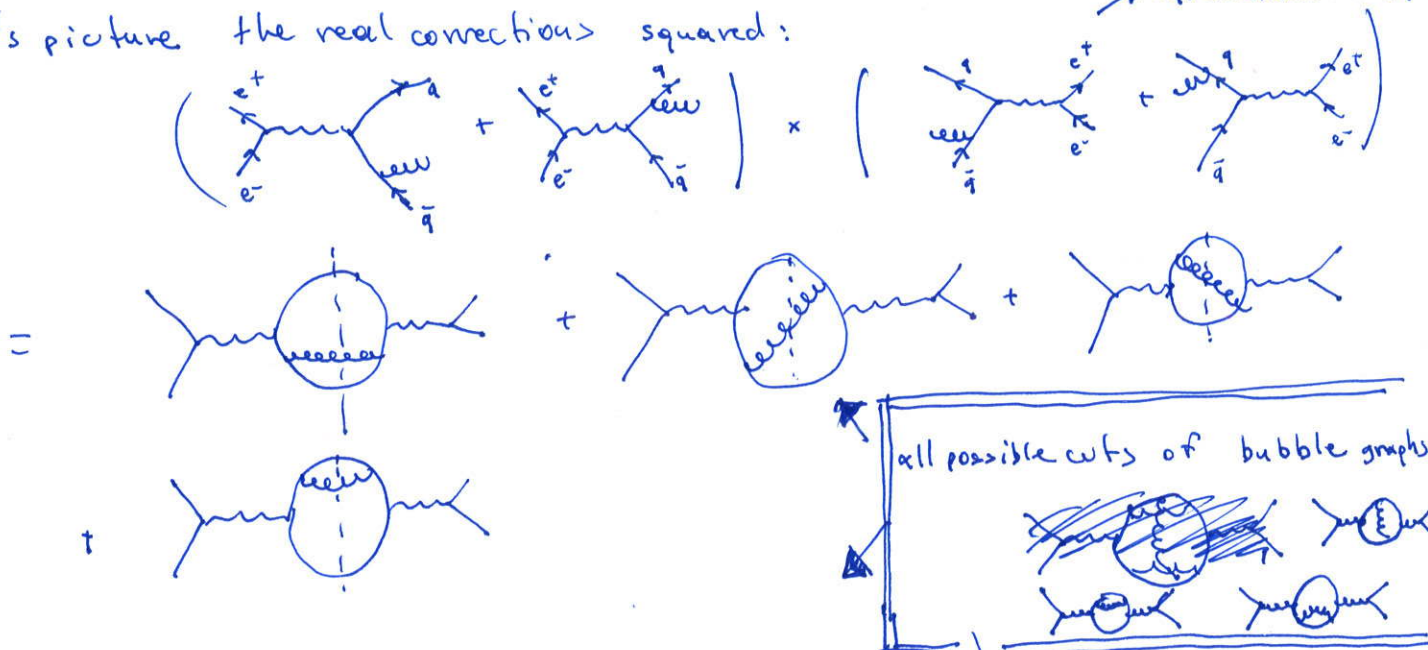 s picture the real corrections squared:
( e⁺ e⁻ q q̄ + e⁺ e⁻ q q̄ ) × ( q q̄ e⁺ e⁻ + q q̄ e⁺ e⁻ )
= + +
+
all possible cuts of bubble graphs